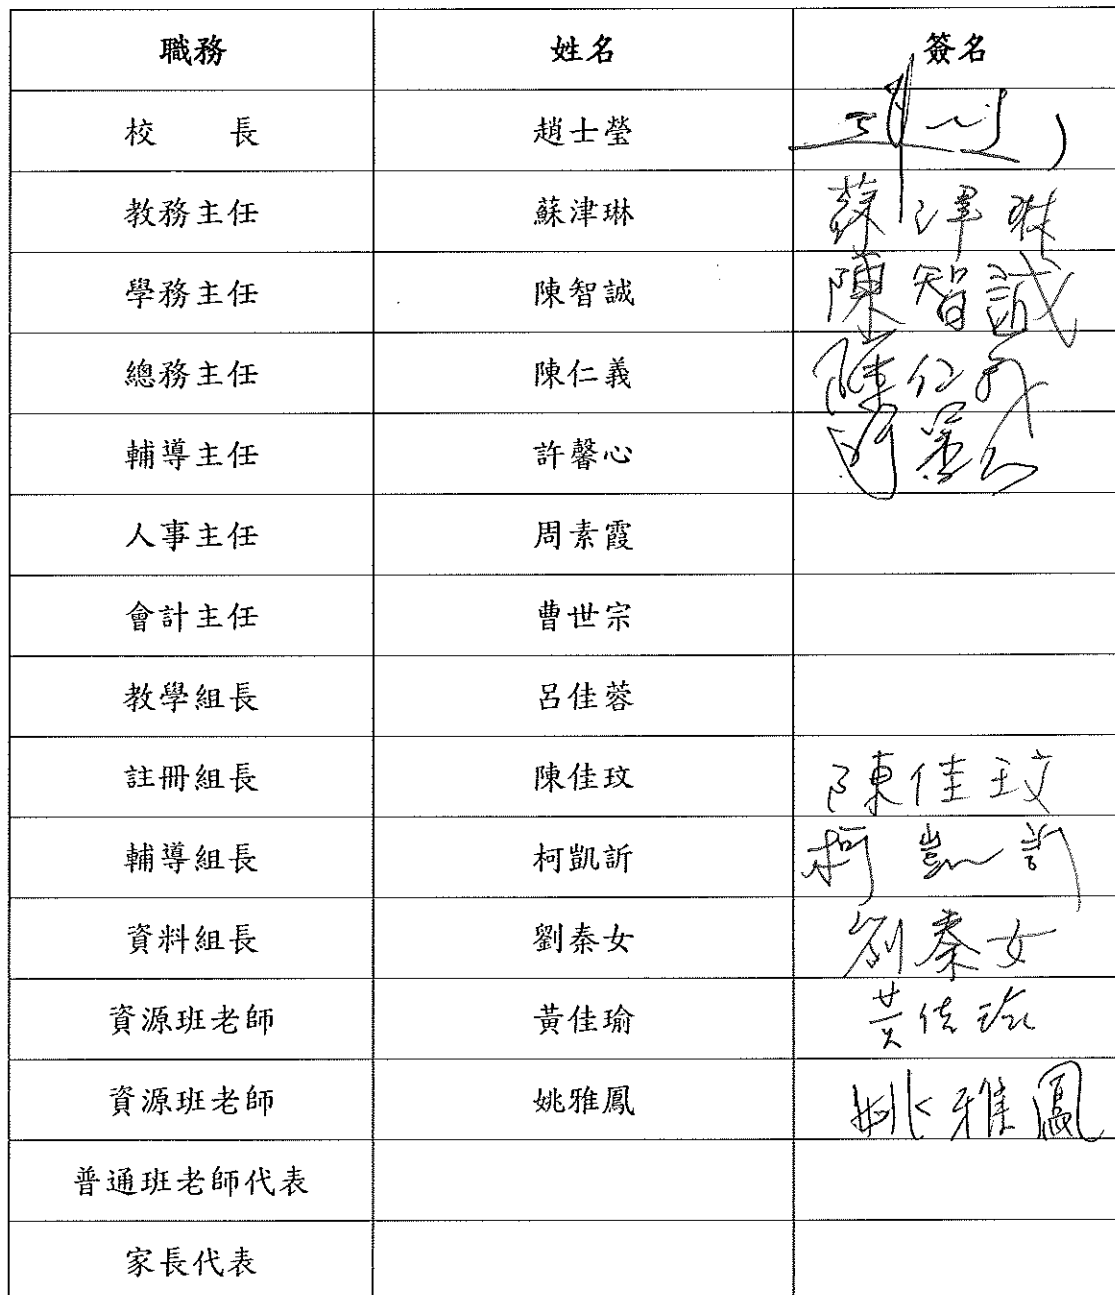 職務 姓名 簽名
校 長 趙士瑩
教務主任 蘇津琳 蘇津琳
學務主任 陳智誠 陳智誠
總務主任 陳仁義 陳仁義
輔導主任 許馨心
人事主任 周素霞
會計主任 曹世宗
教學組長 呂佳蓉
註冊組長 陳佳玟 陳佳玟
輔導組長 柯凱訢 柯凱訢
資料組長 劉秦女 劉秦女
資源班老師 黃佳瑜 黃佳瑜
資源班老師 姚雅鳳 姚雅鳳
普通班老師代表
家長代表